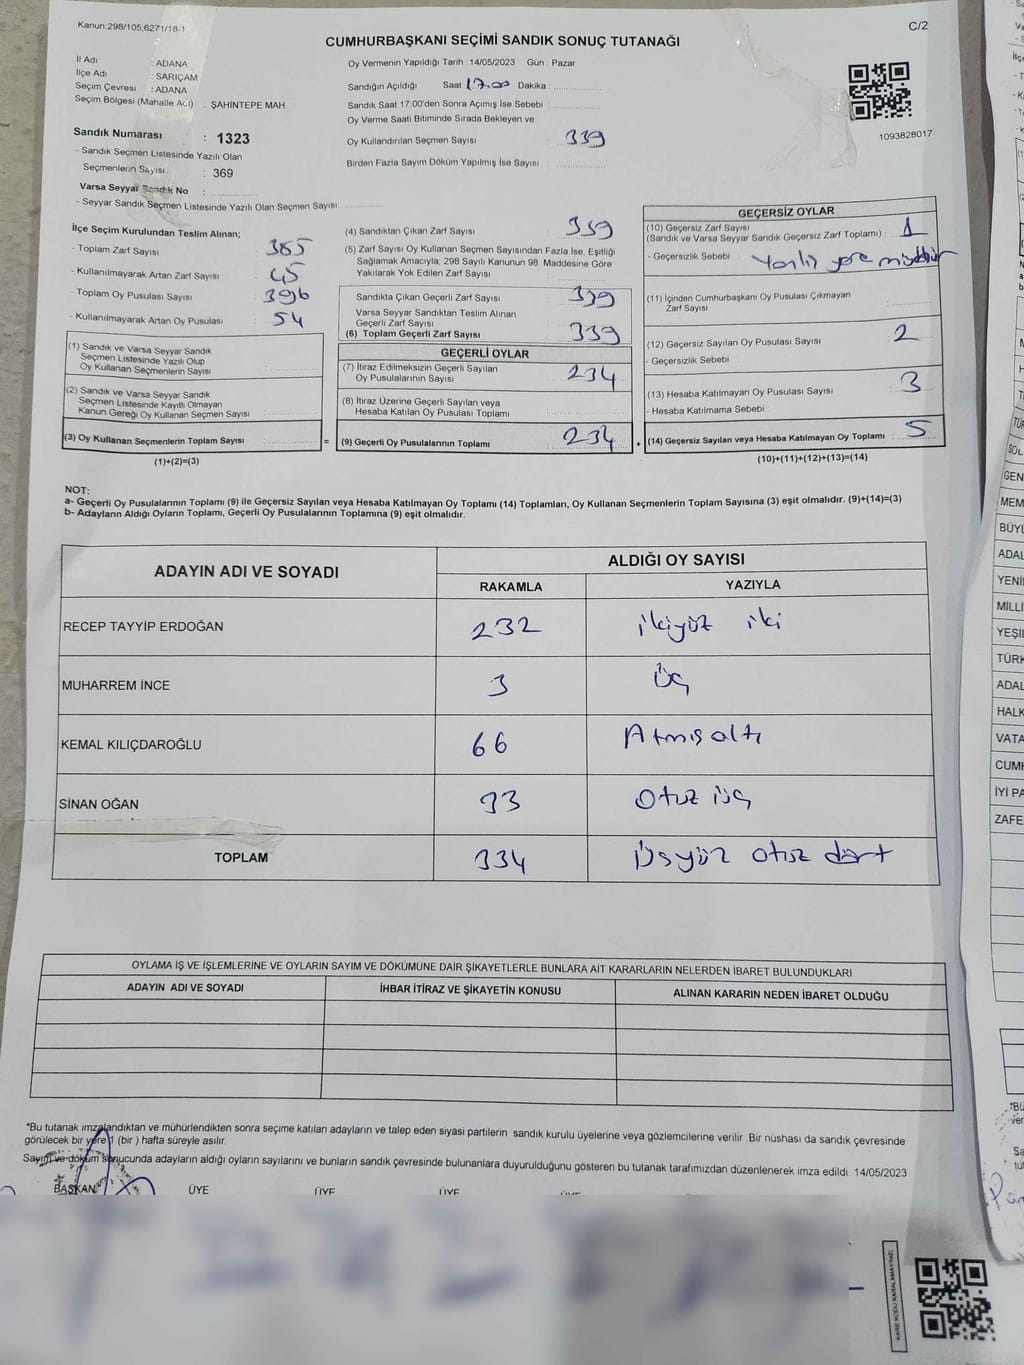 Kanun:298/105;6271/18-1
C/2
CUMHURBAŞKANI SEÇİMİ SANDIK SONUÇ TUTANAĞI
İl Adı : ADANA
İlçe Adı : SARIÇAM
Seçim Çevresi : ADANA
Seçim Bölgesi (Mahalle Adı) : ŞAHİNTEPE MAH.
Sandık Numarası : 1323
- Sandık Seçmen Listesinde Yazılı Olan
Seçmenlerin Sayısı : 369
Varsa Seyyar Sandık No :
- Seyyar Sandık Seçmen Listesinde Yazılı Olan Seçmen Sayısı.
Oy Vermenin Yapıldığı Tarih :14/05/2023 Gün : Pazar
Sandığın Açıldığı Saat 17.00 Dakika :
Sandık Saat 17.00'den Sonra Açımış İse Sebebi :
Oy Verme Saati Bitiminde Sırada Bekleyen ve
Oy Kullandırılan Seçmen Sayısı : 339
Birden Fazla Sayım Döküm Yapılmış İse Sayısı :
1093828017
İlçe Seçim Kurulundan Teslim Alınan;
- Toplam Zarf Sayısı : 385
- Kullanılmayarak Artan Zarf Sayısı : 45
- Toplam Oy Pusulası Sayısı : 396
- Kullanılmayarak Artan Oy Pusulası : 54
(1) Sandık ve Varsa Seyyar Sandık
Seçmen Listesinde Yazılı Olup
Oy Kullanan Seçmenlerin Sayısı
(2) Sandık ve Varsa Seyyar Sandık
Seçmen Listesinde Kayıtlı Olmayan
Kanun Gereği Oy Kullanan Seçmen Sayısı
(3) Oy Kullanan Seçmenlerin Toplam Sayısı =
(1)+(2)=(3)
(4) Sandıktan Çıkan Zarf Sayısı : 339
(5) Zarf Sayısı Oy Kullanan Seçmen Sayısından Fazla İse, Eşitliği
Sağlamak Amacıyla, 298 Sayılı Kanunun 98. Maddesine Göre
Yakılarak Yok Edilen Zarf Sayısı
Sandıkta Çıkan Geçerli Zarf Sayısı : 339
Varsa Seyyar Sandıktan Teslim Alınan
Geçerli Zarf Sayısı
(6) Toplam Geçerli Zarf Sayısı : 339
GEÇERLİ OYLAR
(7) İtiraz Edilmeksizin Geçerli Sayılan
Oy Pusulalarının Sayısı : 234
(8) İtiraz Üzerine Geçerli Sayılan veya
Hesaba Katılan Oy Pusulası Toplamı
(9) Geçerli Oy Pusulalarının Toplamı 234 +
GEÇERSİZ OYLAR
(10) Geçersiz Zarf Sayısı
(Sandık ve Varsa Seyyar Sandık Geçersiz Zarf Toplamı) : 1
- Geçersizlik Sebebi : Yanlış yere
(11) İçinden Cumhurbaşkanı Oy Pusulası Çıkmayan
Zarf Sayısı
(12) Geçersiz Sayılan Oy Pusulası Sayısı : 2
- Geçersizlik Sebebi
(13) Hesaba Katılmayan Oy Pusulası Sayısı : 3
- Hesaba Katılmama Sebebi
(14) Geçersiz Sayılan veya Hesaba Katılmayan Oy Toplamı : 5
(10)+(11)+(12)+(13)=(14)
NOT:
a- Geçerli Oy Pusulalarının Toplamı (9) ile Geçersiz Sayılan veya Hesaba Katılmayan Oy Toplamı (14) Toplamları, Oy Kullanan Seçmenlerin Toplam Sayısına (3) eşit olmalıdır. (9)+(14)=(3)
b- Adayların Aldığı Oyların Toplamı, Geçerli Oy Pusulalarının Toplamına (9) eşit olmalıdır.
ADAYIN ADI VE SOYADI
ALDIĞI OY SAYISI
RAKAMLA YAZIYLA
RECEP TAYYİP ERDOĞAN 232 ikiyüz iki
MUHARREM İNCE 3 üç
KEMAL KILIÇDAROĞLU 66 Atmış altı
SİNAN OĞAN 33 Otuz üç
TOPLAM 334 Üsyüz otuz dört
OYLAMA İŞ VE İŞLEMLERİNE VE OYLARIN SAYIM VE DÖKÜMÜNE DAİR ŞİKAYETLERLE BUNLARA AİT KARARLARIN NELERDEN İBARET BULUNDUKLARI
ADAYIN ADI VE SOYADI İHBAR İTİRAZ VE ŞİKAYETİN KONUSU ALINAN KARARIN NEDEN İBARET OLDUĞU
*Bu tutanak imzalandıktan ve mühürlendikten sonra seçime katılan adayların ve talep eden siyasi partilerin sandık kurulu üyelerine veya gözlemcilerine verilir .Bir nüshası da sandık çevresinde
görülecek bir yere 1 (bir ) hafta süreyle asılır.
Sayım ve döküm sonucunda adayların aldığı oyların sayılarını ve bunların sandık çevresinde bulunanlara duyurulduğunu gösteren bu tutanak tarafımızdan düzenlenerek imza edildi. 14/05/2023
BAŞKAN ÜYE ÜYE ÜYE ÜYE
KARE KODU KARALAMAYINIZ!